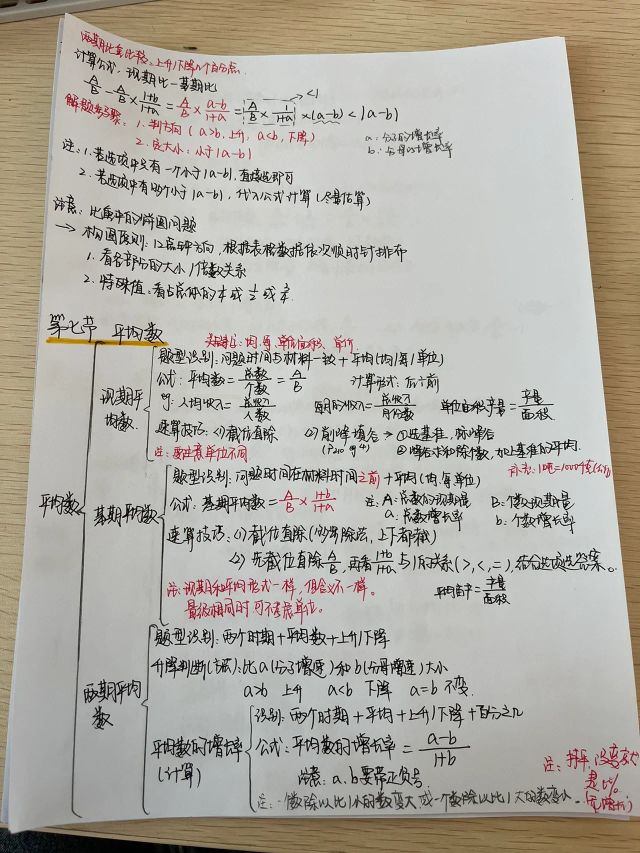 两期比重比较。上升/下降几个百分点
计算公式，现期比-基期比
A/B - A/B × (1+b)/(1+a) = A/B × (a-b)/(1+a) = A/B × 1/(1+a) × (a-b) < |a-b|
<1
解题步骤：1. 判方向（a>b，上升，a<b，下降）
a：分子的增长率
2. 定大小：小于|a-b|
b：分母的增长率
注：1. 若选项中只有一个小于|a-b|，直接选即可
2. 若选项中有两个小于|a-b|，代入公式计算（尽量估算）
注意：比重中的饼图问题
→ 构图原则：12点钟方向，根据表格数据依次顺时针排布
1. 看各部分的大小/倍数关系
2. 特殊值：看占总体的
第七节 平均数
关键词：均、每、单位面积、单价
平均数
现期平均数
题型识别：问题时间与材料一致+平均(均/每/单位)
公式：平均数=总数/个数=A/B 计算形式：后÷前
例：人均收入=总收入/人数 每月的收入=总收入/月份数 单位面积产量=产量/面积
速算技巧：(1)截位直除 (2)削峰填谷→①选基准，标峰谷
注：要注意单位不同
②峰谷求和除个数，加上基准的平均.
补充：1吨=1000千克(公斤)
基期平均数
题型识别：问题时间在材料时间之前+平均(均.每.单位)
公式：基期平均数=A/B × (1+b)/(1+a) 注：A：总数的现期量 B：个数现期量
a：总数增长率 b：个数增长率
速算技巧：(1)截位直除(分步除法，上下都截)
(2)先截位直除A/B，再看(1+b)/(1+a)与1的关系(>,<,=)，结合选项选答案。
注：现期和平均形式一样，但含义不一样。
平均亩产=产量/面积
量级相同时可不考虑单位。
两期平均数
题型识别：两个时期+平均数+上升/下降
升降判断(方法)：比a(分子增速)和b(分母增速)大小
a>b 上升 a<b 下降 a=b 不变.
平均数的增长率(计算)
识别：两个时期+平均+上升/下降+百分之几
公式：平均数的增长率=(a-b)/(1+b)
注意：a.b要带正负号
注：一个数除以比1小的数变大，一个数除以比1大的数变小.
注：持平，没变
是0%